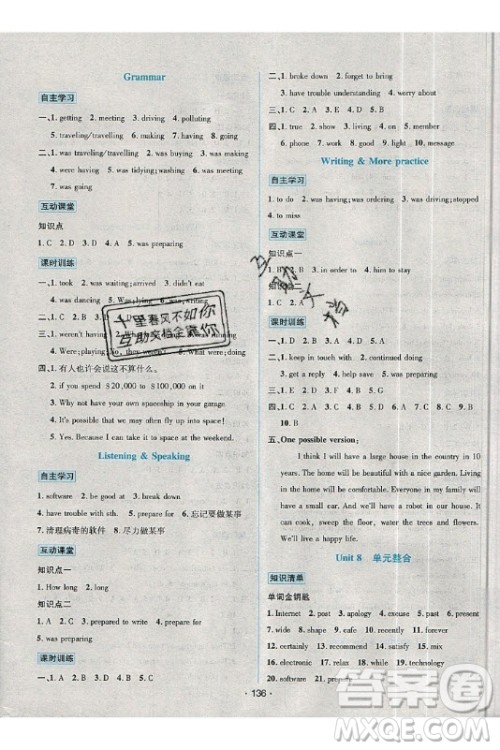 Grammar
自主学习
一、1. getting 2. meeting 3. driving 4. polluting
5. traveling/travelling 6. making 7. having 8. going
二、1. was traveling/travelling 2. was buying 3. was making
4. were having 5. was dating 6. washing 7. was wearing
互动课堂
知识点
1. C 2. A 3. D 4. D 5. was preparing
课时训练
一、1. took 2. was waiting 3. arrived 4. didn't eat
5. was visiting
三、1. weren't having 2. wasn't sleeping 3. What were
Were; playing; No, they
四、1. 有人也许会说这不算什么。
2. if you spend $20,000 to $100,000 on it
3. Why not have your own spaceship in your garage
4. It's possible that we may often fly to
5. Yes. Because I want to space at the weekend.
Listening & Speaking
自主学习
1. software 2. be good at 3. break down
4. have trouble with sth. 5. prepare for 6. 忘记要做某事
7. 清理病毒的软件 8. 尽力做某事
互动课堂
知识点一
1. How long 2. long
知识点二
1. A 2. A 3. A 4. to prepare; for
5. was preparing
课时训练
一、1. D 2. C 3. B 4. A 5. C
二、1. broke down 2. going on 3. are good at
4. have trouble understanding 5. were having
三、1. C 2. A 3. D 4. A 5. C
四、1. true 2. show 3. living 4. on 5. member
6. presents 7. or 8. going 9. light 10. message
Writing & More practice
自主学习
1. to do 2. was having; was ordering 3. was driving; stopped
4. to miss
互动课堂
知识点一
1. B 2. A 3. invited him 4. him to stay
1. C 2. A
课时训练
1. using the computer 2. prepare for
6. help 7. save 8. was preparing
四、1. C 2. B 3. D 4. A 5. C 6. B 7. A 8. C 9. D
10. B
五、One possible version:
I think I will have a large house in the country in 10
years. It will be beautiful with a nice garden. Living in a
large house will be my family's dream. Everyone in my family
will have a small car. And we will have a robot in our home. It
can cook, sweep the floor, water the trees and flowers. We
will live a happy life.
Unit 8 单元整合
知识清单
单词金钥匙
1. Internet 2. past 3. mouse 4. possible 5. powerful
6. recently 7. visitor 8. tomorrow 9. fact 10. appear
11. spread 12. certain 13. seem 14. fear 15. whenever
16. electronic 17. relax 18. while 19. technology
20. software 21. prepare
· 136 ·
十里春风不如你
互助文档全靠你
答案圈
MXQE.COM